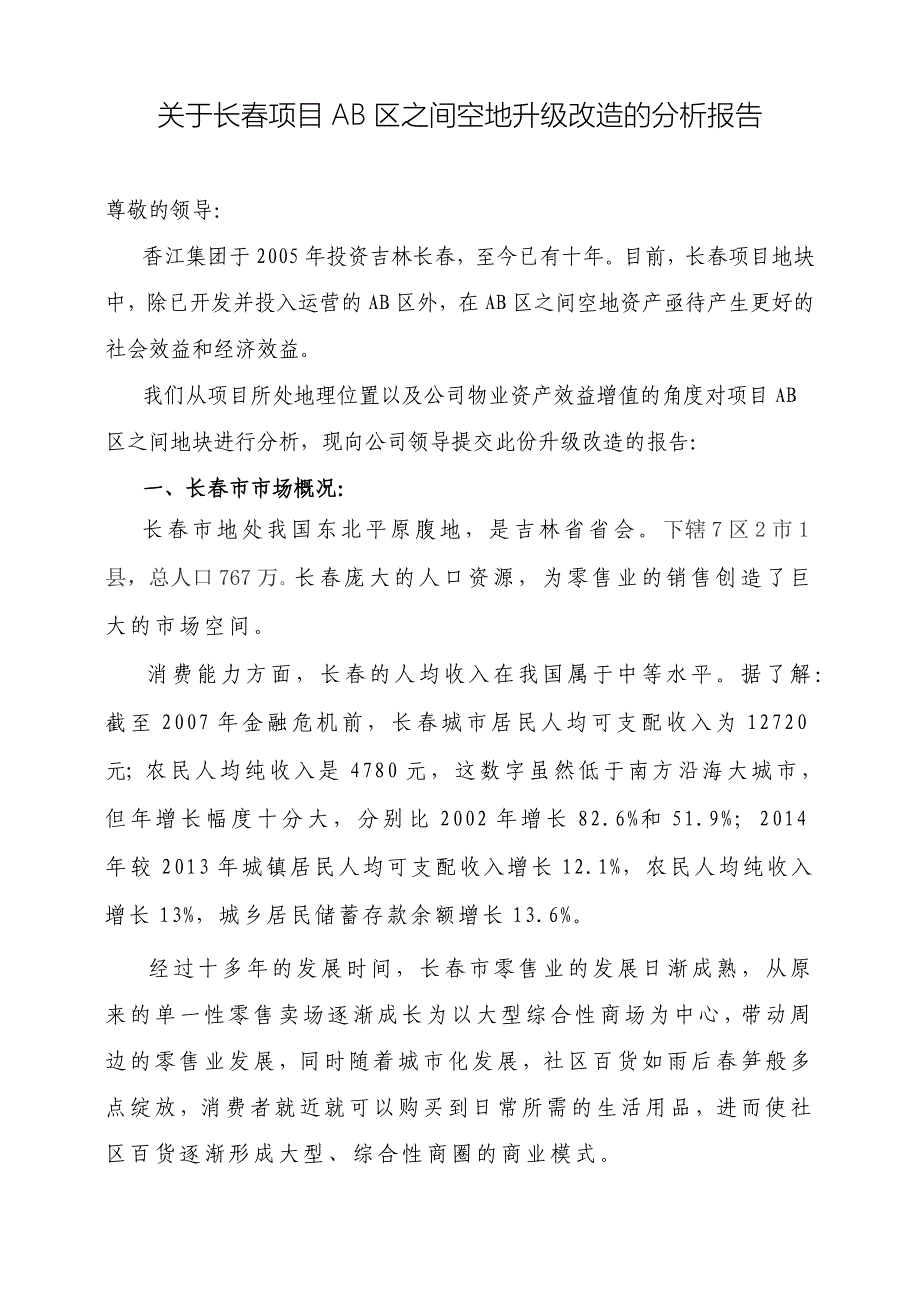 关于长春项目 AB 区之间空地升级改造的分析报告
尊敬的领导：
香江集团于 2005 年投资吉林长春，至今已有十年。目前，长春项目地块
中，除已开发并投入运营的 AB 区外，在 AB 区之间空地资产亟待产生更好的
社会效益和经济效益。
我们从项目所处地理位置以及公司物业资产效益增值的角度对项目 AB
区之间地块进行分析，现向公司领导提交此份升级改造的报告：
一、长春市市场概况：
长春市地处我国东北平原腹地，是吉林省省会。下辖 7 区 2 市 1
县，总人口 767 万。长春庞大的人口资源，为零售业的销售创造了巨
大的市场空间。
消费能力方面，长春的人均收入在我国属于中等水平。据了解：
截至 2007 年金融危机前，长春城市居民人均可支配收入为 12720
元；农民人均纯收入是 4780 元，这数字虽然低于南方沿海大城市，
但年增长幅度十分大，分别比 2002 年增长 82.6%和 51.9%；2014
年较 2013 年城镇居民人均可支配收入增长 12.1%，农民人均纯收入
增长 13%，城乡居民储蓄存款余额增长 13.6%。
经过十多年的发展时间，长春市零售业的发展日渐成熟，从原
来的单一性零售卖场逐渐成长为以大型综合性商场为中心，带动周
边的零售业发展，同时随着城市化发展，社区百货如雨后春笋般多
点绽放，消费者就近就可以购买到日常所需的生活用品，进而使社
区百货逐渐形成大型、综合性商圈的商业模式。